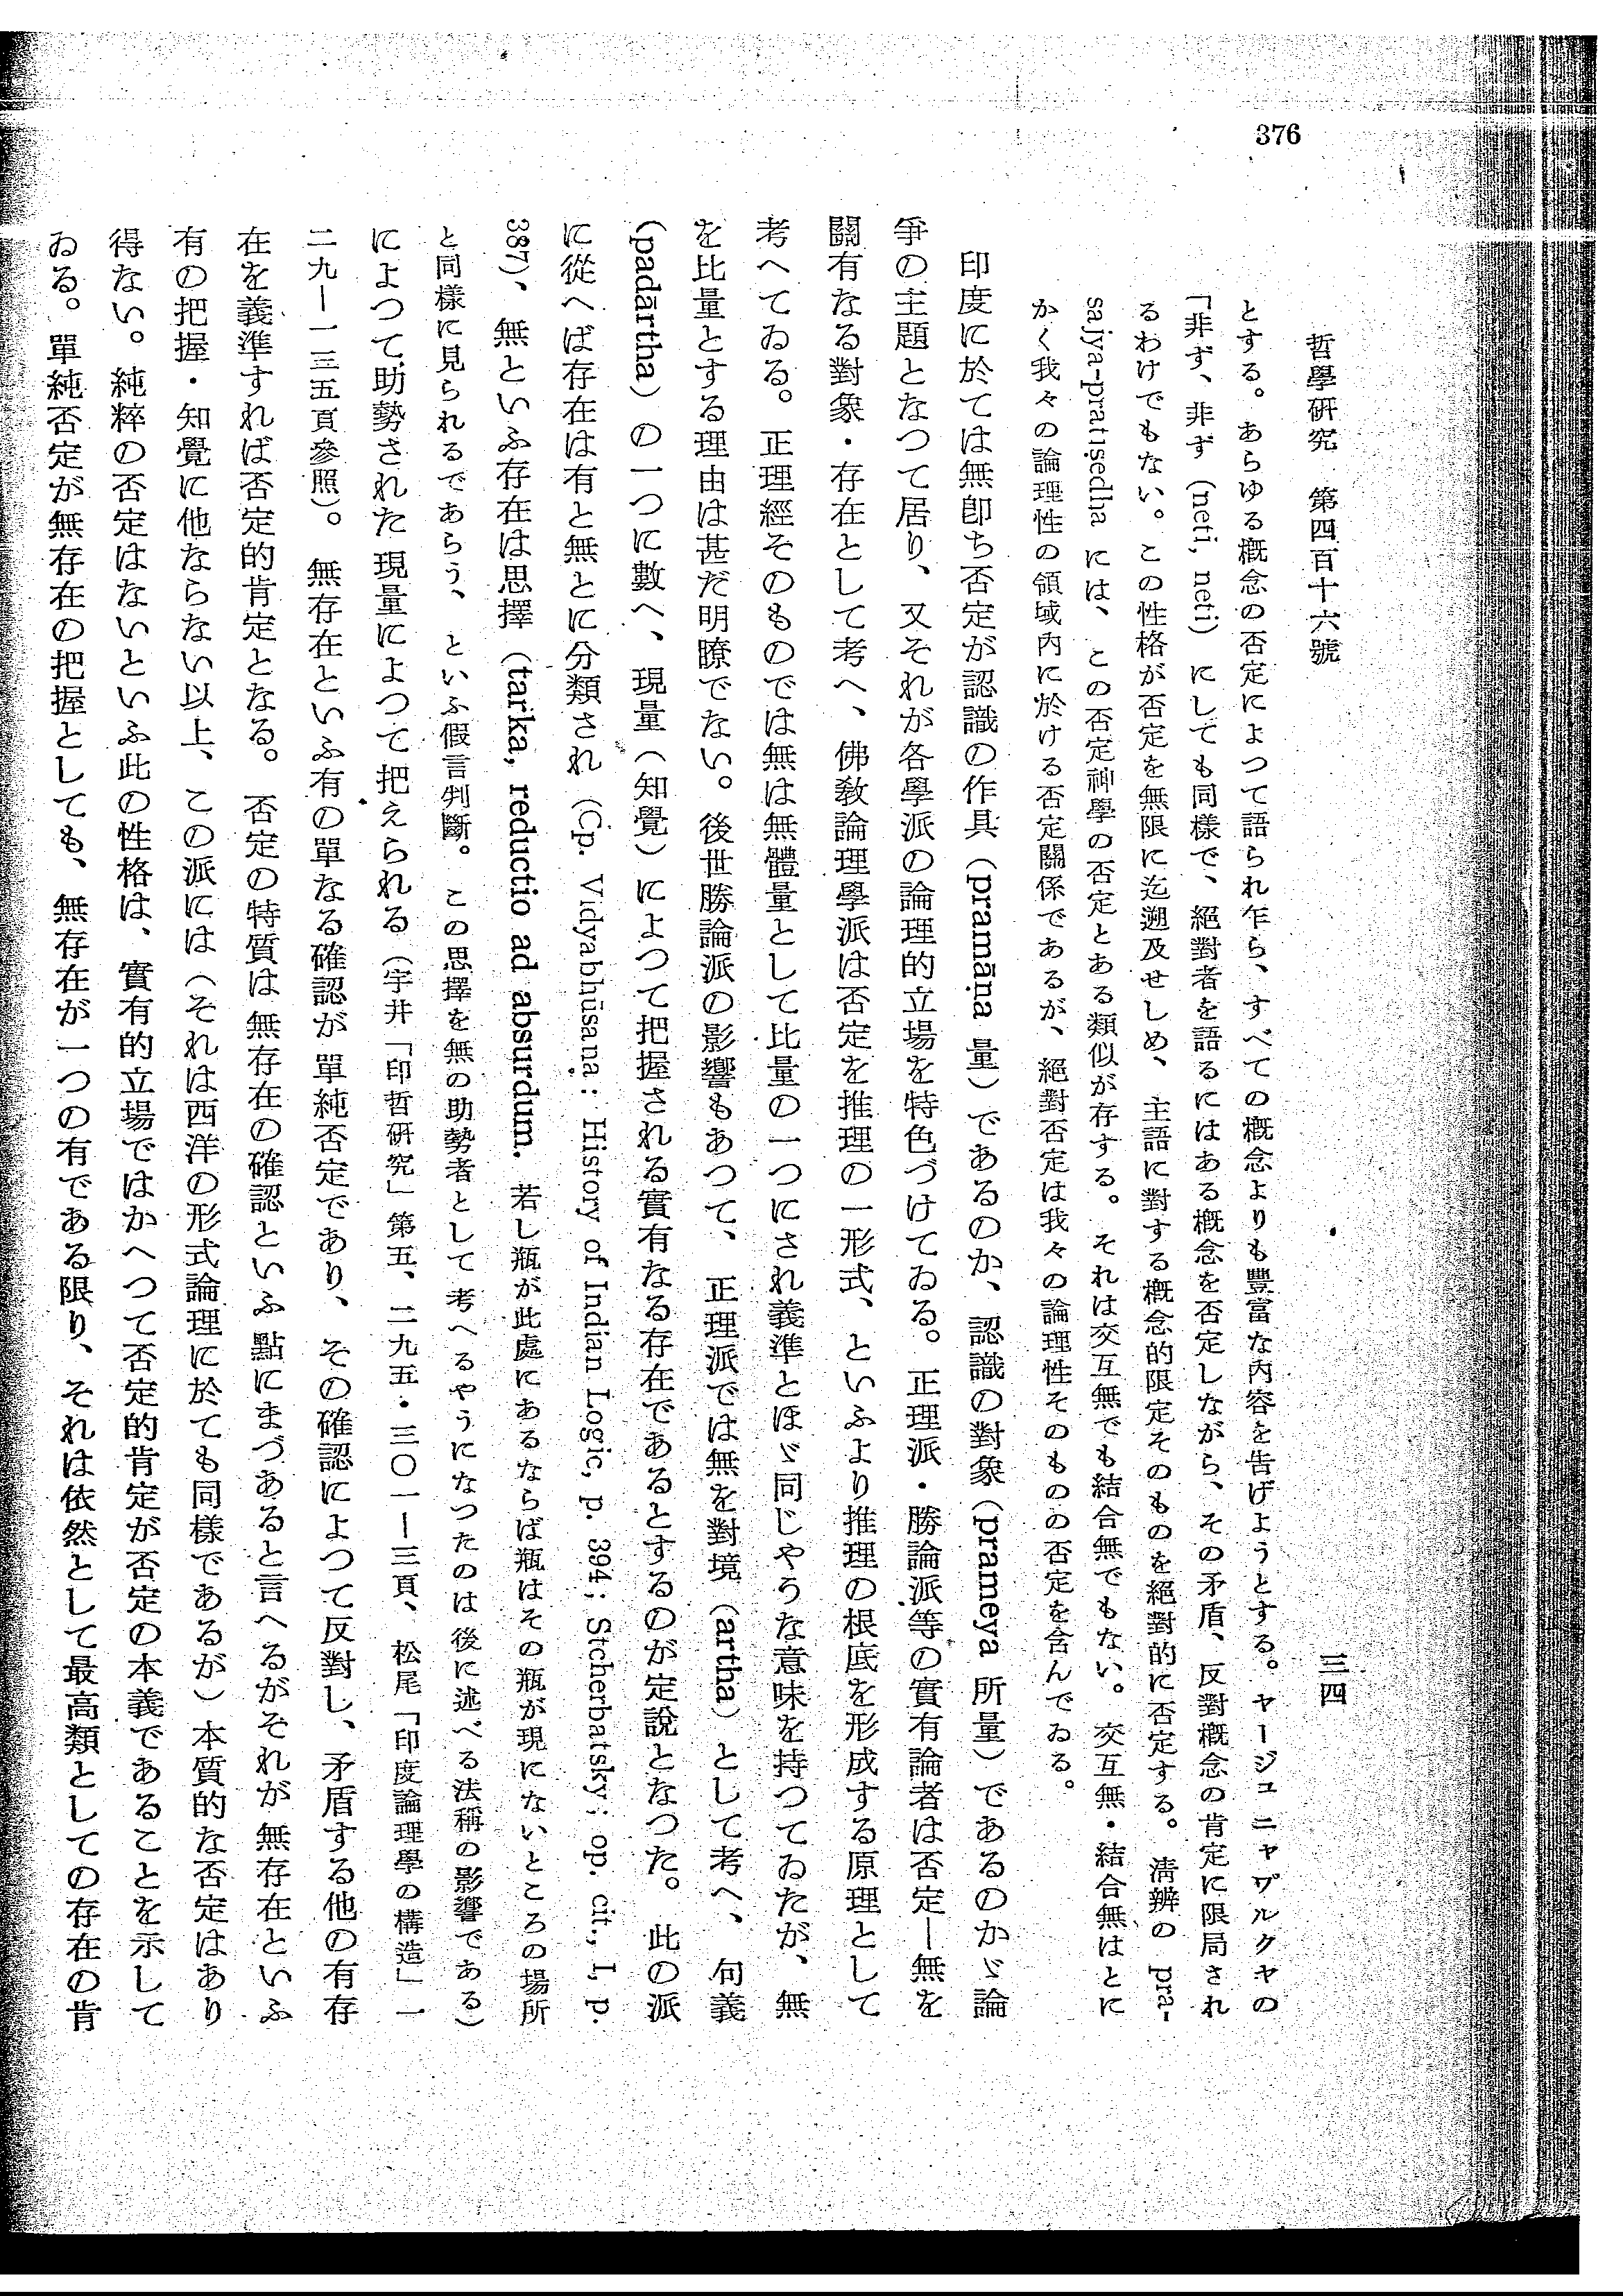 376
哲學研究　第四百十六號
三四
とする。あらゆる概念の否定によつて語られ乍ら、すべての概念よりも豐富な内容を告げようとする。ヤージュニャヷルクヤの
「非ず、非ず (neti, neti) にしても同様で、絕對者を語るにはある概念を否定しながら、その矛盾、反對概念の肯定に限局され
るわけでもない。この性格が否定を無限に迄遡及せしめ、主語に對する概念的限定そのものを絕對的に否定する。淸辨の pra-
sajya-pratiṣedha には、この否定神學の否定とある類似が存する。それは交互無でも結合無でもない。交互無・結合無はとに
かく我々の論理性の領域内に於ける否定關係であるが、絕對否定は我々の論理性そのものの否定を含んでゐる。
印度に於ては無卽ち否定が認識の作具（pramāṇa 量）であるのか、認識の對象（prameya 所量）であるのかゞ論
爭の主題となつて居り、又それが各學派の論理的立場を特色づけてゐる。正理派・勝論派等の實有論者は否定—無を
關有なる對象・存在として考へ、佛敎論理學派は否定を推理の一形式、といふより推理の根底を形成する原理として
考へてゐる。正理經そのものでは無は無體量として比量の一つにされ義準とほゞ同じやうな意味を持つてゐたが、無
を比量とする理由は甚だ明瞭でない。後世勝論派の影響もあつて、正理派では無を對境（artha）として考へ、句義
（padārtha）の一つに數へ、現量（知覺）によつて把握される實有なる存在であるとするのが定說となつた。此の派
に從へば存在は有と無とに分類され（Cp. Vidyabhūsaṇa: History of Indian Logic, p. 394; Stcherbatsky: op. cit., I, p.
387）、無といふ存在は思擇（tarka, reductio ad absurdum. 若し瓶が此處にあるならば瓶はその瓶が現にないところの場所
と同樣に見られるであらう、といふ假言判斷。この思擇を無の助勢者として考へるやうになつたのは後に述べる法稱の影響である）
によつて助勢された現量によつて把えられる（宇井「印哲硏究」第五、二九五・三〇一—三頁、松尾「印度論理學の構造」一
二九—一三五頁參照）。無存在といふ有の單なる確認が單純否定であり、その確認によつて反對し、矛盾する他の有存
在を義準すれば否定的肯定となる。否定の特質は無存在の確認といふ點にまづあると言へるがそれが無存在といふ
有の把握・知覺に他ならない以上、この派には（それは西洋の形式論理に於ても同樣であるが）本質的な否定はあり
得ない。純粹の否定はないといふ此の性格は、實有的立場ではかへつて否定的肯定が否定の本義であることを示して
ゐる。單純否定が無存在の把握としても、無存在が一つの有である限り、それは依然として最高類としての存在の肯